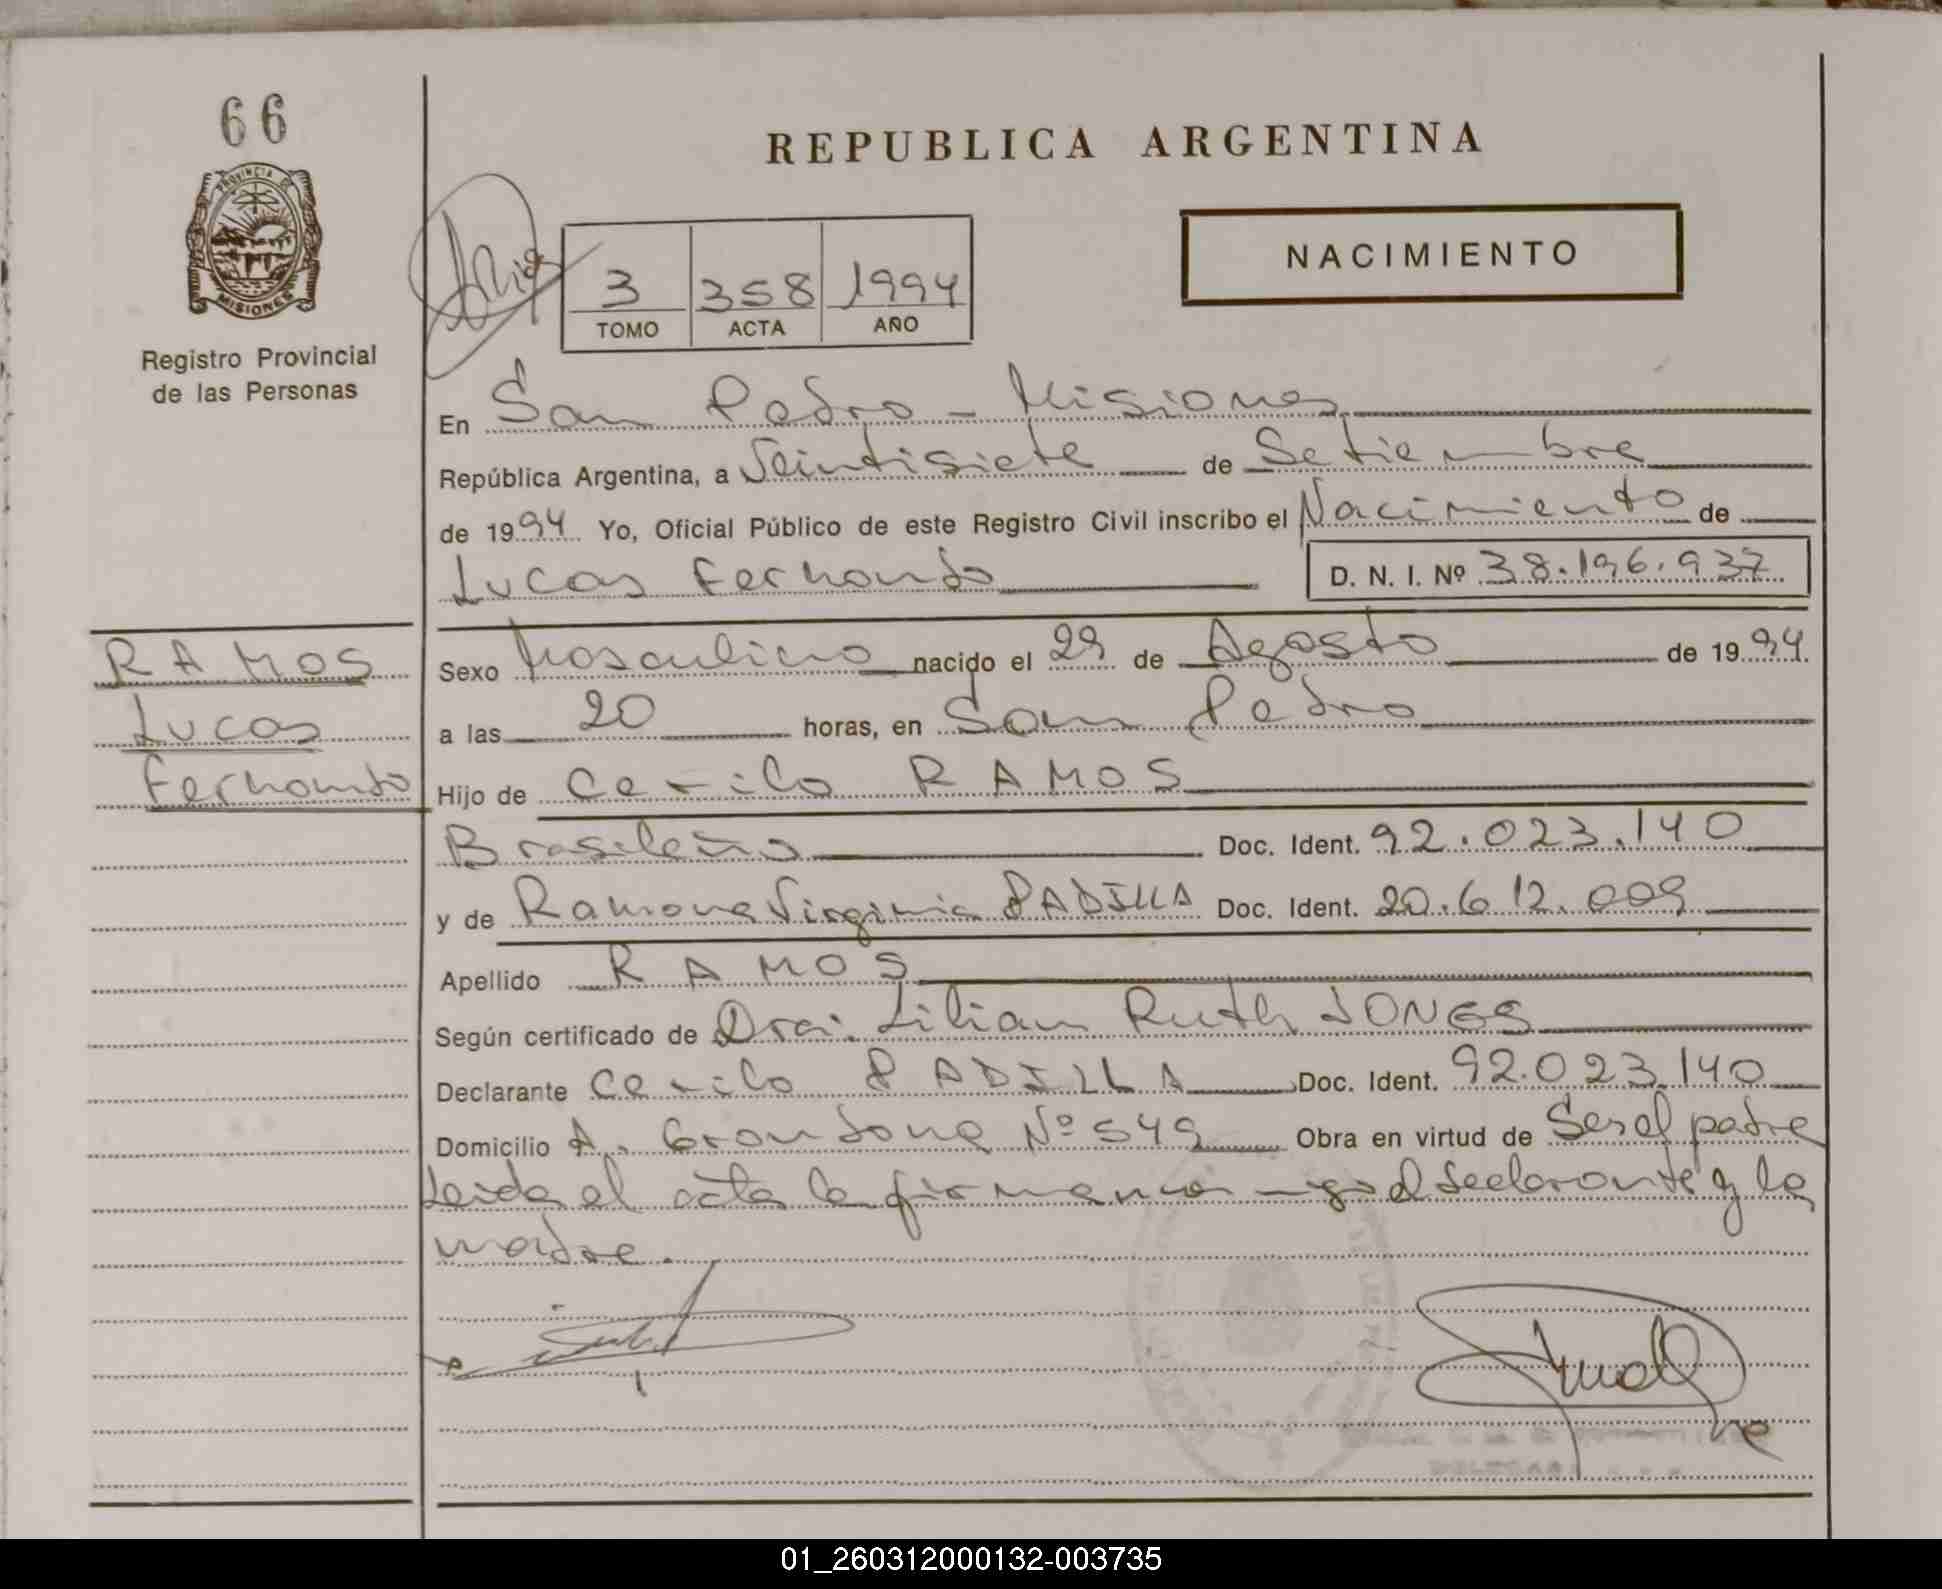 66
PROVINCIA DE
MISIONES
Registro Provincial
de las Personas
REPUBLICA ARGENTINA
NACIMIENTO
3 358 1994
TOMO ACTA AÑO
En San Pedro - Misiones
República Argentina, a Veintisiete de Setiembre
de 1994 Yo, Oficial Público de este Registro Civil inscribo el Nacimiento de
Lucas Fernando D. N. I. Nº 38.196.937
RAMOS
Lucas
Fernando
Sexo Masculino nacido el 29 de Agosto de 1994
a las 20 horas, en San Pedro
Hijo de RAMOS
Brasileño Doc. Ident. 92.023.140
y de Ramona Virginia PADILLA Doc. Ident. 20.612.009
Apellido RAMOS
Según certificado de Dra. Lilian Ruth JONES
Declarante PADILLA Doc. Ident. 92.023.140
Domicilio A. Grondona Nº 549 Obra en virtud de Ser el padre
Leida el acta la firman el declarante y la
madre.
01_260312000132-003735